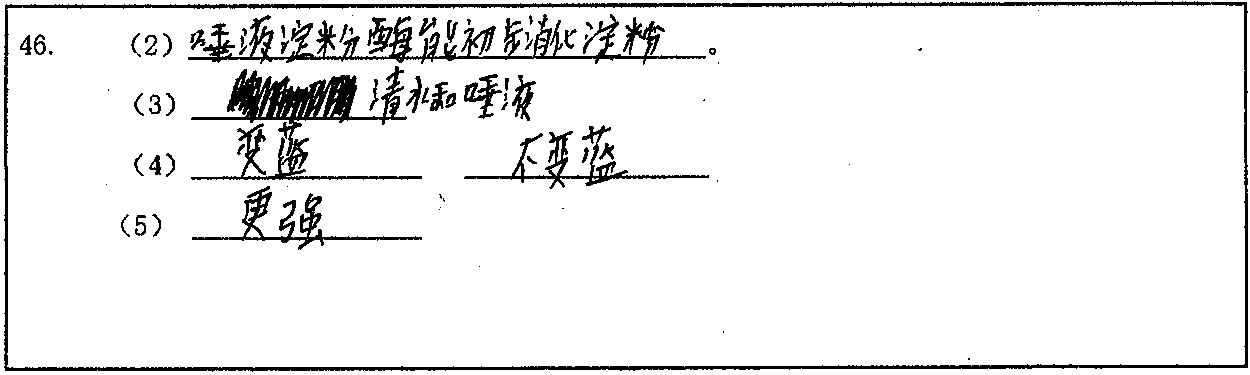 46. (2) 唾液淀粉酶能初步消化淀粉。
(3) 清水和唾液
(4) 变蓝 不变蓝
(5) 更强